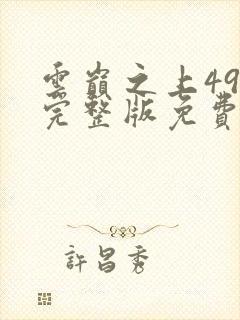 雲巔之上49
完整版免費
許昌秀